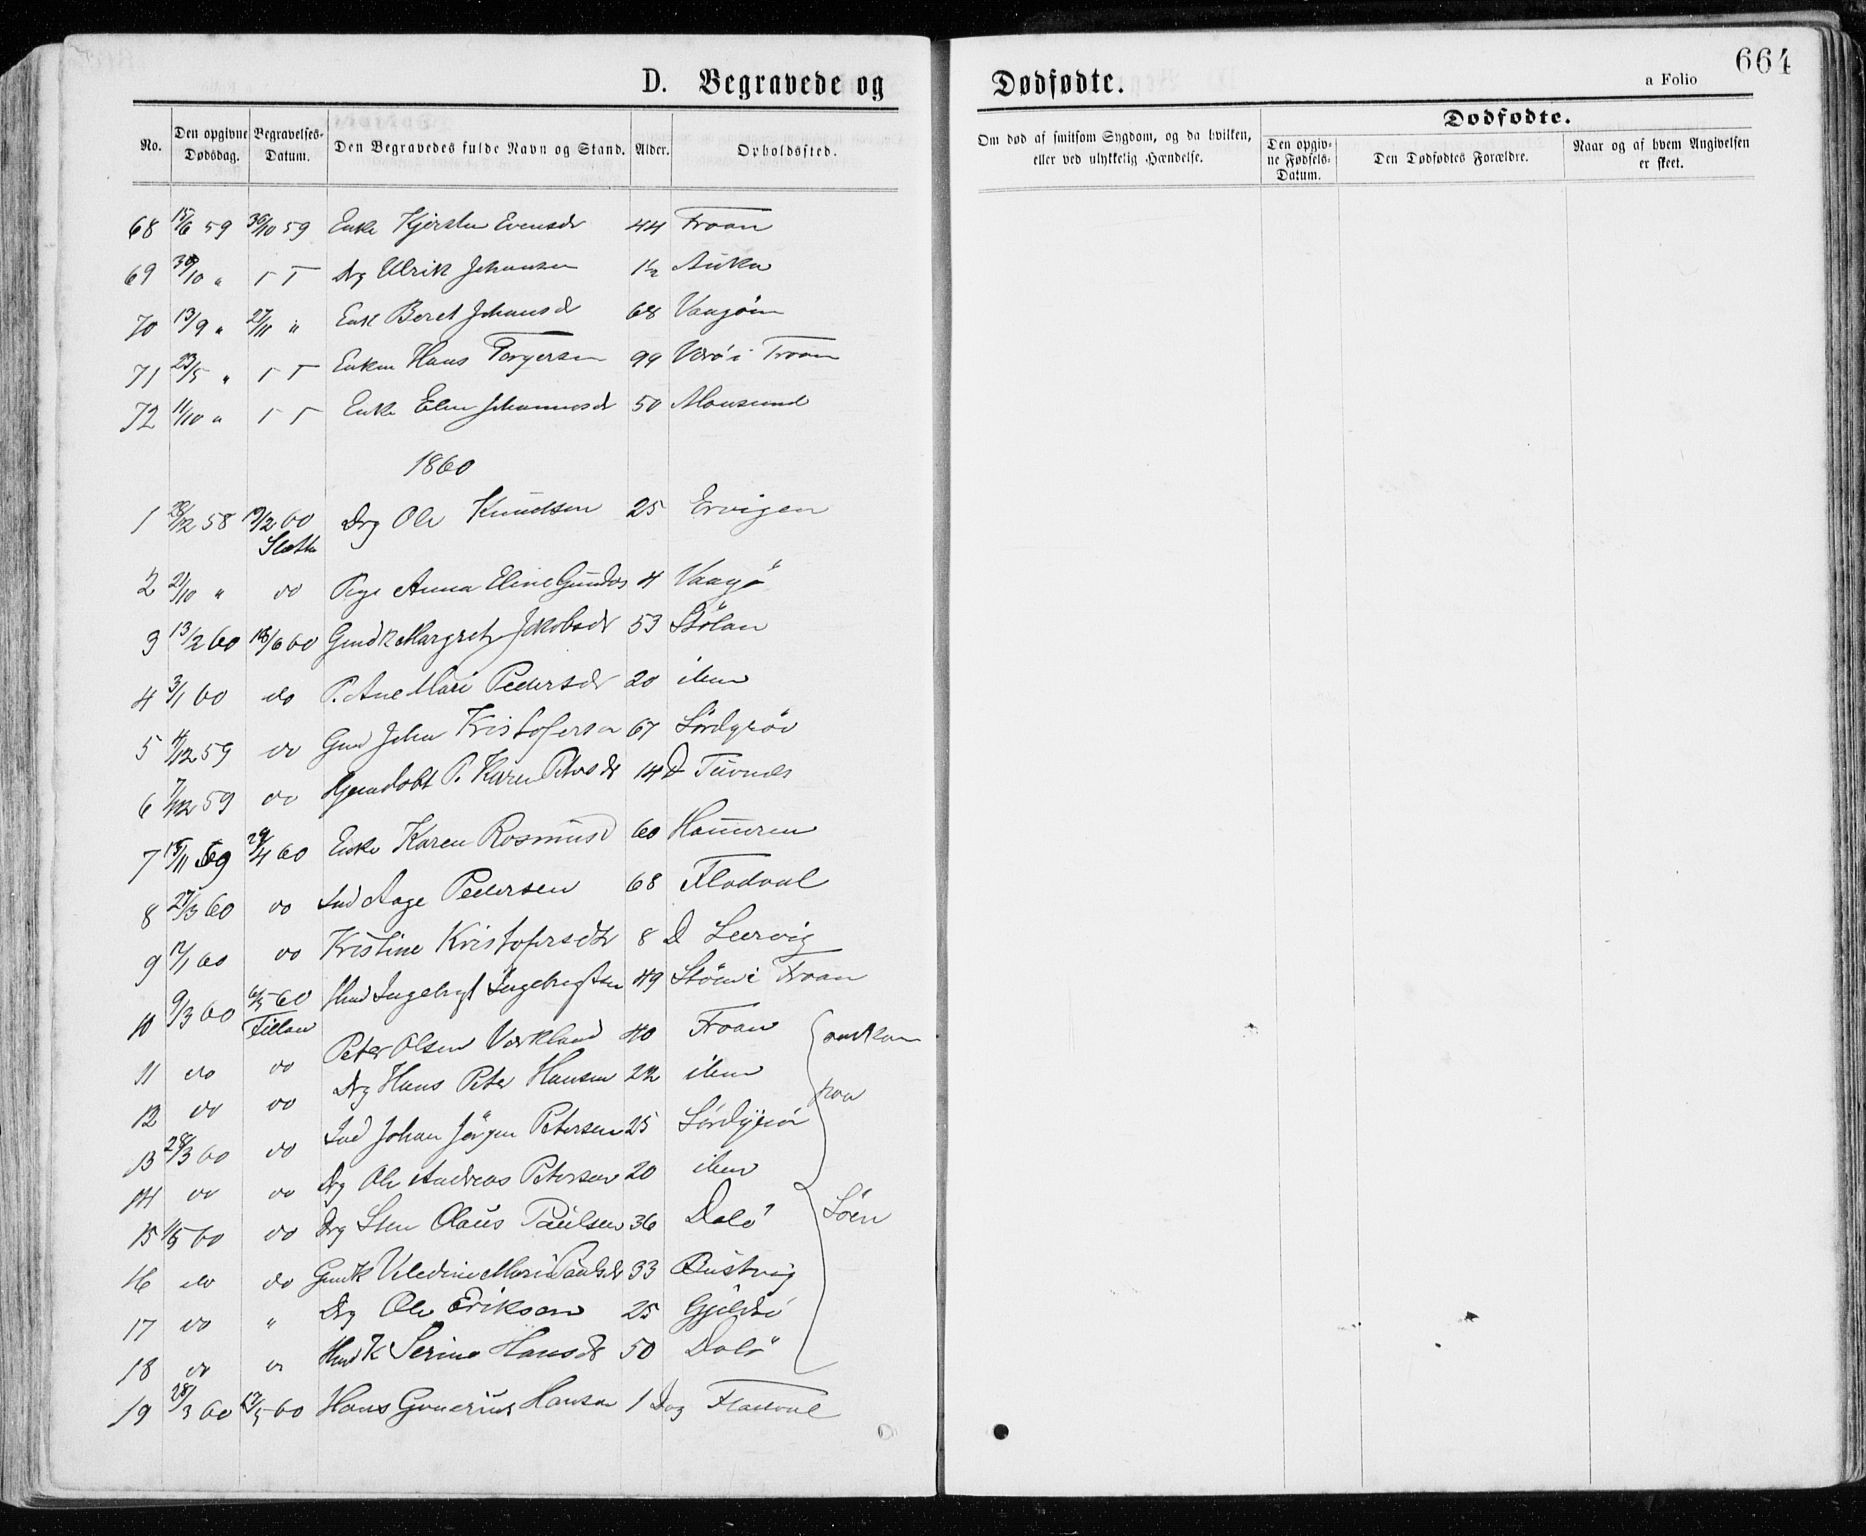 664
D. Begravede og Dødfødte.
a Folio
No. Den opgivne Dødsdag. Begravelses-Datum. Den Begravedes fulde Navn og Stand. Alder. Opholdssted. Om død af smitsom Sygdom, og da hvilken, eller ved ulykkelig Hændelse. Dødfødte. Den opgivne Fødsels-Datum. Den Dødfødtes Forældre. Naar og af hvem Angivelsen er skeet.
68 15/6 59 30/10 59 Enke Kjersten Evensdr 44 Froan
69 30/10 " Drg Ulrik Johansen 1½
70 13/9 " 27/11 " Enke Beret Johansdr 68
71 23/5 " Enkem Hans Torgersen 99 i Froan
72 11/10 " Enke Elen Johannesdr 50 Mausund
1860
1 28/12 58 19/2 60 Drg Ole Knudsen 25 Ervigen
Sletta
2 21/10 " do Pige Anna Eline 4 Vaagø
3 13/2 60 18/6 60 Gmdk Margreth Jakobsdr 53 Stølan
4 3/1 60 do P. Ane Mari Pedersdr 20 ibm
5 4/12 59 do Gmd John Kristofersen 67 Sørdyrøi
6 7/12 59 do Hjemdøbt P. Karen Petersdr 14 D Tuvnes
7 15/11 59 29/4 60 Enke Karen Rasmusd 60 Hammren
8 27/3 60 do Ind Aage Pedersen 68 Fladval
9 12/1 60 do Kristine Kristofersdtr 8 D Leervig
10 9/3 60 6/5 60 Hmd Ingebrigt Ingebrigtsen 49 i Froan
Fillan
11 do do Peter Olsen Værkland 40 Froan omkom
12 do do Drg Hans Peter Hansen 22 ibm paa
13 28/3 60 do Ind Johan Jørgen Petersen 25 Sørdyrøi
14 do do Drg Ole Andreas Petersen 20 ibm
15 11/5 60 do Drg Sten Olaus Paulsen 36 Dolø Søen
16 do do Gmdk Mari Paulsdr 33
17 do " Drg Ole Eriksen 25
18 do Hmdk Serine Hansdr 50 Dolø
19 28/3 60 17/5 60 Hans Gunerius Hansen 1 Dag Fladval